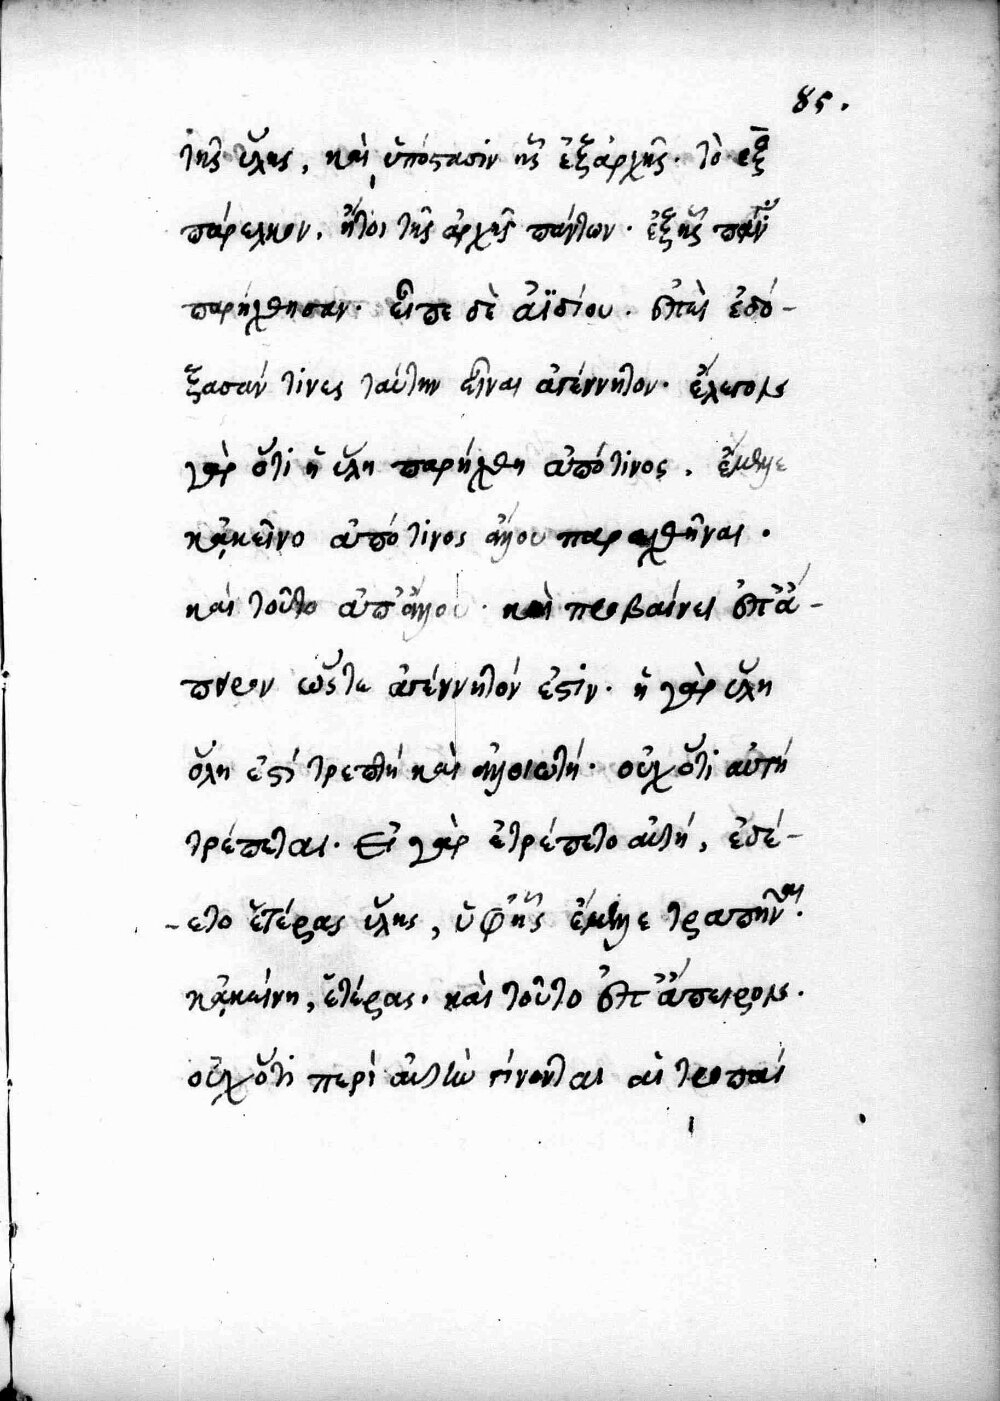 85.
τῆς ὕλης, καὶ ὑπόστασιν τῆς ἐξαρχῆς. τὸ ἐξ
παρέλκον, ἤτοι τῆς ἀρχῆς πάντων. ἐξ ἧς
παρήχθησαν. εἶπε δὲ ἀϊδίου. ἐπεὶ ἐδό-
ξασάν τινες ταύτην εἶναι ἀγέννητον. ἔλεγον
γὰρ ὅτι ἡ ὕλη παρήχθη ἀπό τινος, ἔμελλε
κἀκεῖνο ἀπό τινος ἄλλου παραχθῆναι.
καὶ τοῦτο ἀπ' ἄλλου. καὶ προβαίνει ἐπ' ἄ-
πειρον ὥστε ἀγέννητόν ἐστιν. ἡ γὰρ ὕλη
ὅλη ἐστὶ τρεπτὴ καὶ ἀλλοιωτή. οὐχ ὅτι αὐτὴ
τρέπεται. Εἰ γὰρ ἐτρέπετο αὐτή, ἐδέ-
-ετο ἑτέρας ὕλης, ὑφ' ἧς ἔμελλε τραπῆναι.
κἀκείνη, ἑτέρας. καὶ τοῦτο ἐπ' ἄπειρον.
οὐχ ὅτι περὶ αὐτὴν γίνονται αἱ τροπαί